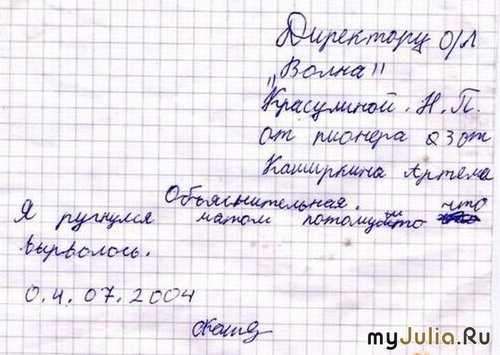 Директору о/л
"Волна"
Красулиной. Н. П.
от пионера 23 от
Каширкина Артема
Объяснительная.
Я ругнулся матом потомуйто что
вырволось.
0.4.07.2004
myJulia.Ru